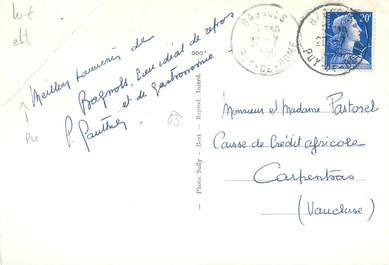 Meilleur souvenir de
Bagnols, lieu idéal de repos
et de gastronomie
P.
Photo Sully - Bort - Reprod. Interd.
BAGNOLS
PUY-DE-DOME
20F
Monsieur et Madame Pastorel
Caisse de Crédit agricole
Carpentras
(Vaucluse)